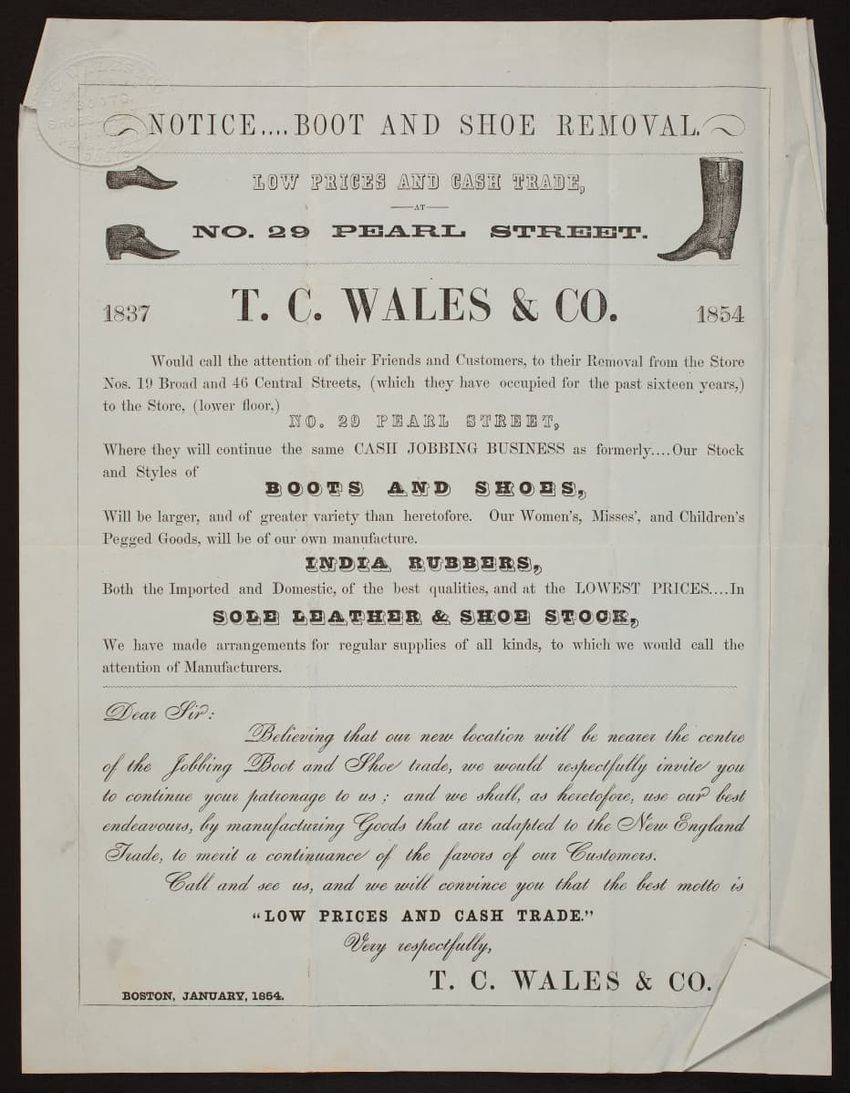 NOTICE....BOOT AND SHOE REMOVAL.
LOW PRICES AND CASH TRADE,
AT
NO. 29 PEARL STREET.
1837 T. C. WALES & CO. 1854
Would call the attention of their Friends and Customers, to their Removal from the Store
Nos. 19 Broad and 46 Central Streets, (which they have occupied for the past sixteen years,)
to the Store, (lower floor,)
NO. 29 PEARL STREET,
Where they will continue the same CASH JOBBING BUSINESS as formerly....Our Stock
and Styles of
BOOTS AND SHOES,
Will be larger, and of greater variety than heretofore. Our Women's, Misses', and Children's
Pegged Goods, will be of our own manufacture.
INDIA RUBBERS,
Both the Imported and Domestic, of the best qualities, and at the LOWEST PRICES....In
SOLE LEATHER & SHOE STOCK,
We have made arrangements for regular supplies of all kinds, to which we would call the
attention of Manufacturers.
Dear Sir:
Believing that our new location will be nearer the centre
of the Jobbing Boot and Shoe trade, we would respectfully invite you
to continue your patronage to us; and we shall, as heretofore, use our best
endeavours, by manufacturing Goods that are adapted to the New England
Trade, to merit a continuance of the favors of our Customers.
Call and see us, and we will convince you that the best motto is
"LOW PRICES AND CASH TRADE."
Very respectfully,
T. C. WALES & CO.
BOSTON, JANUARY, 1854.